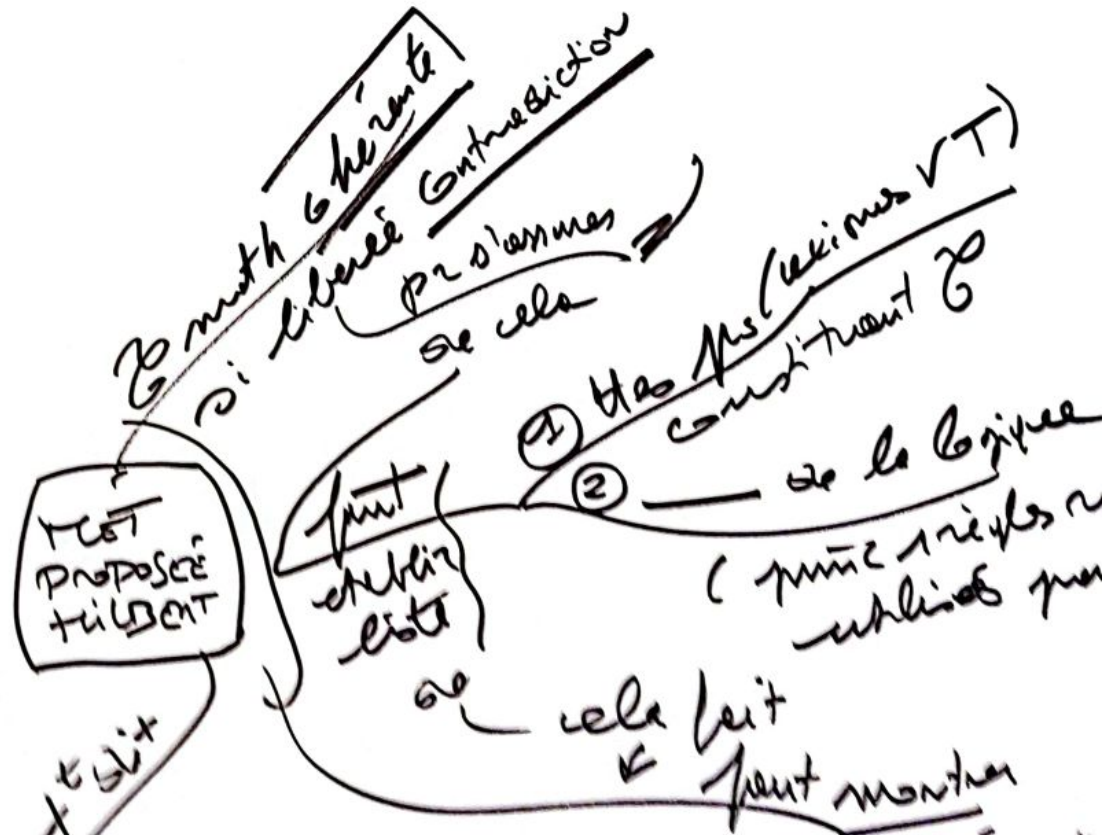 math cohérente
si liberté contradiction
pr s'assurer
de cela
MÉT
PROPOSÉE
HILBERT
faut
établir
liste
de
① ttes (axiomes √ T)
constituant
② de la logique
utilisés
cela fait
faut montrer